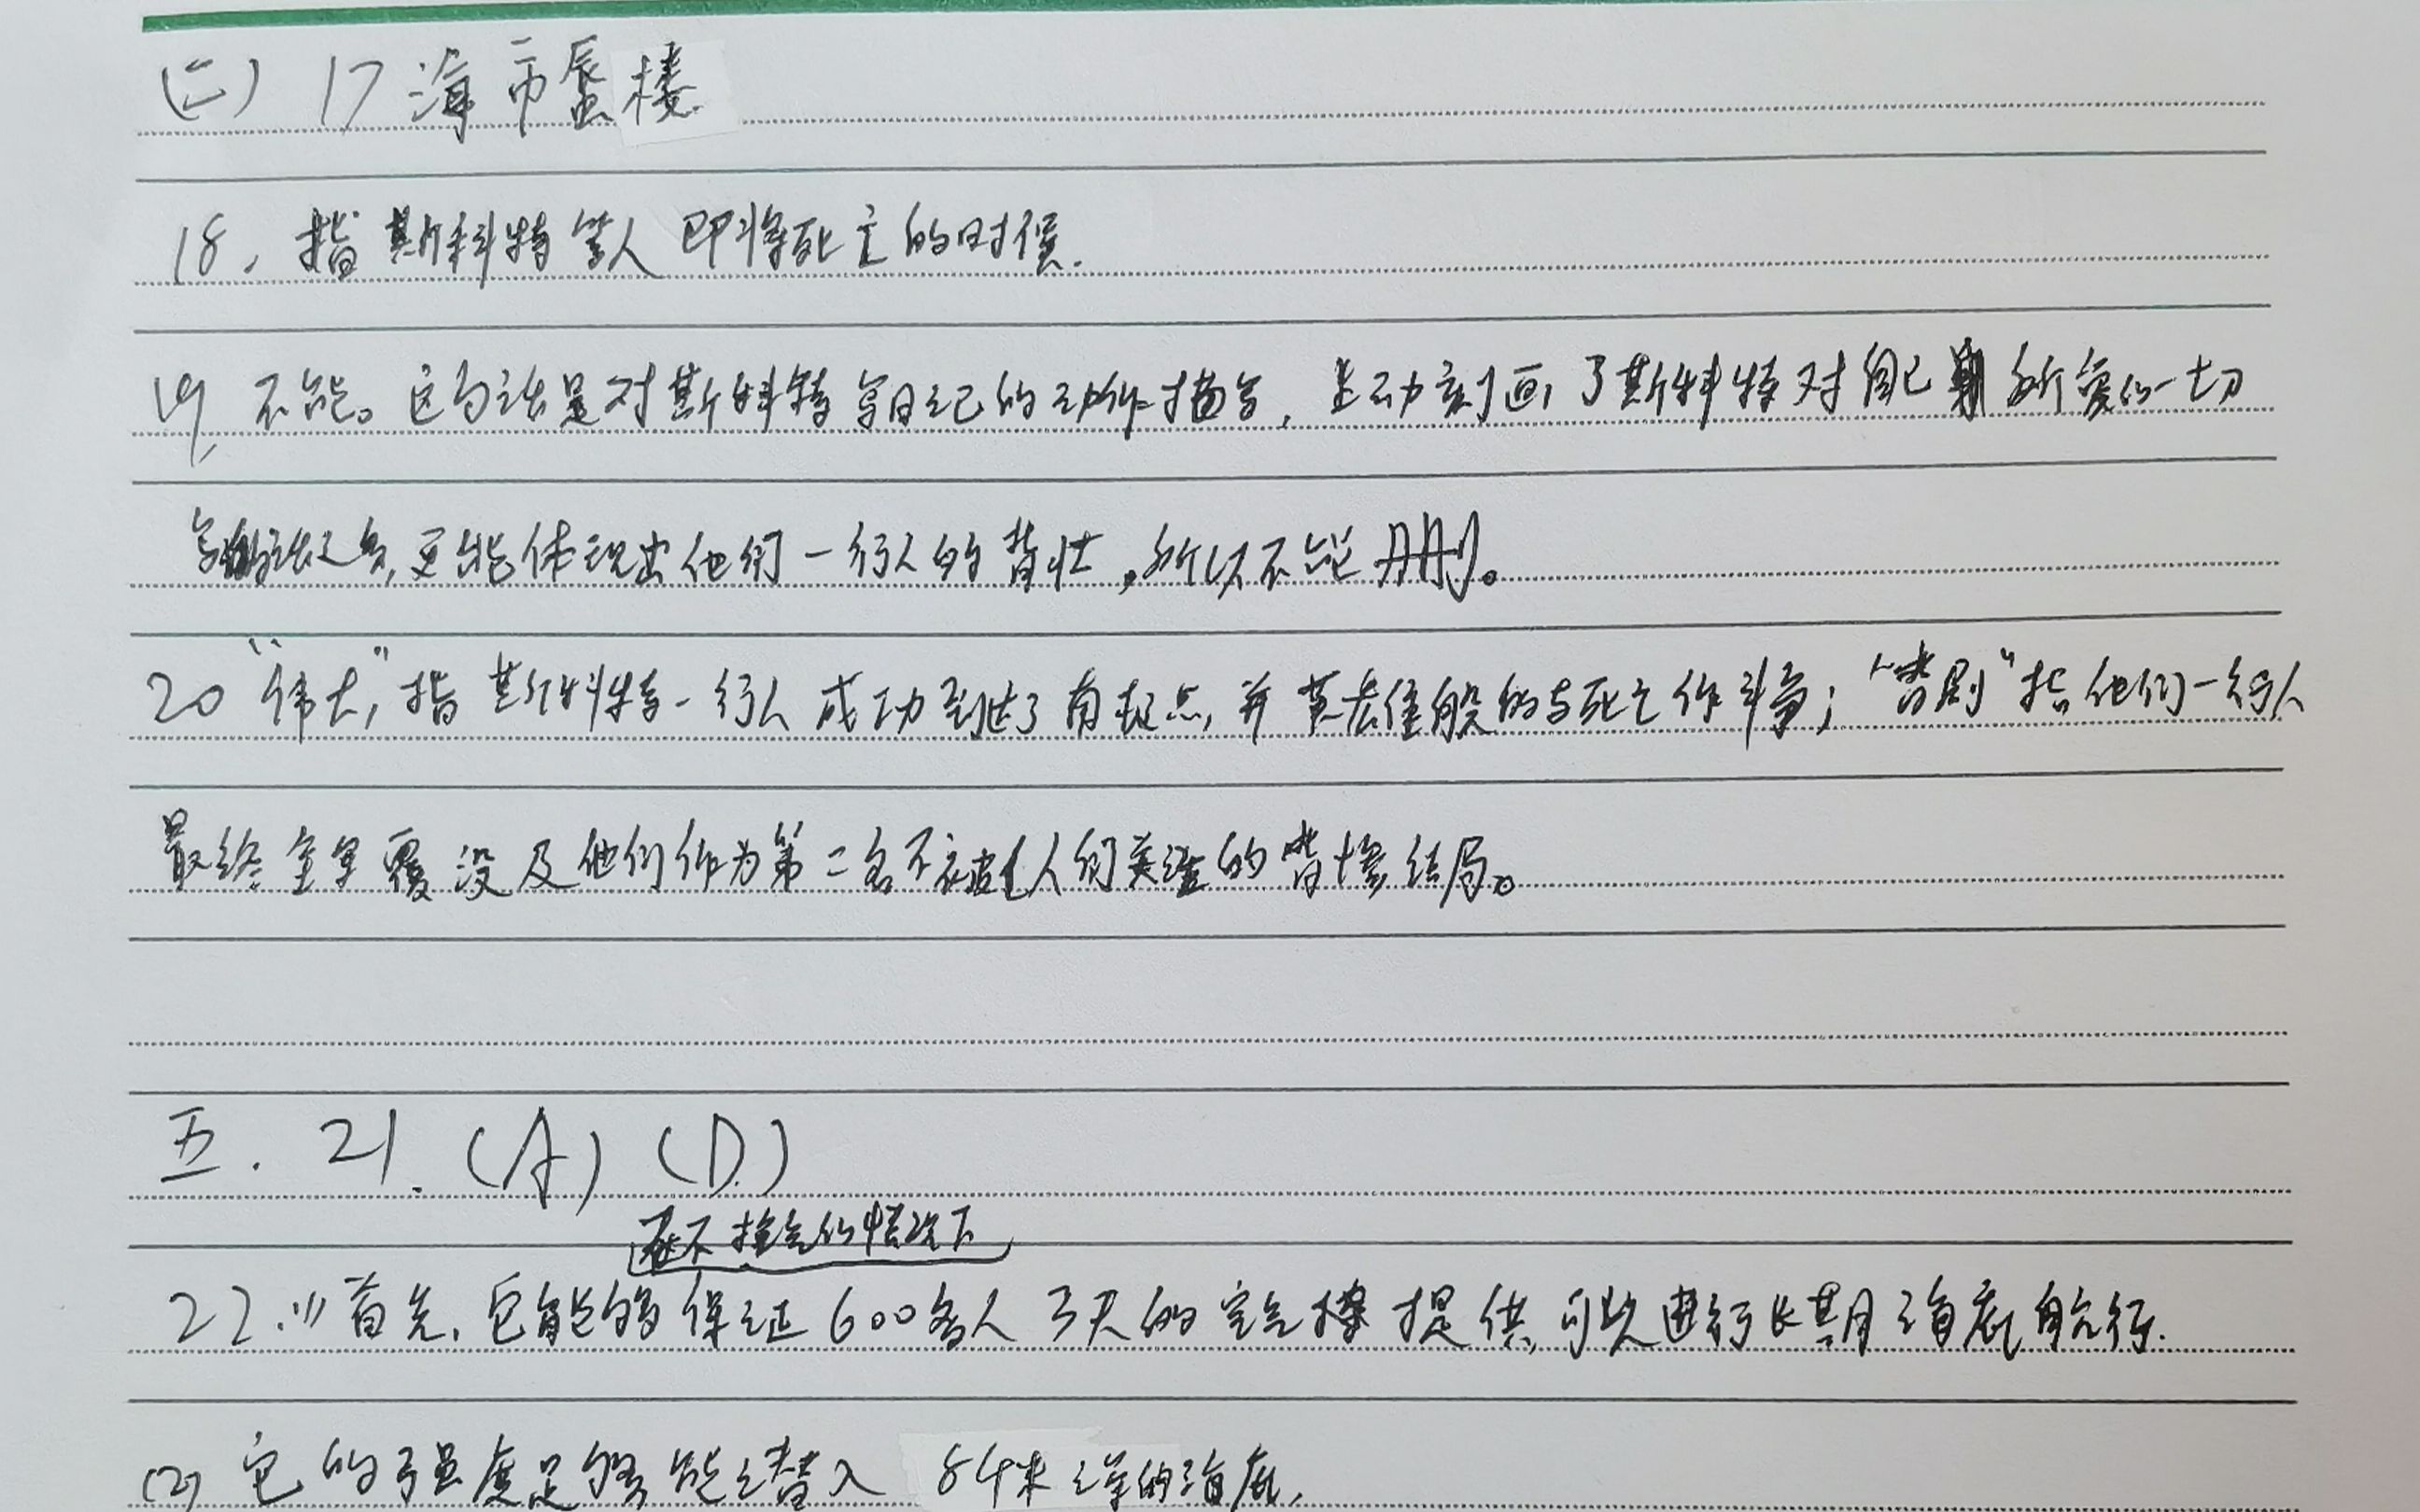 (二) 17 海市蜃楼
18、指斯科特等人即将死亡的时候.
19、不能。这句话是对斯科特写日记的动作描写,生动刻画了斯科特对自己所爱的一切
更能体现出他们一行人的悲壮,所以不能删。
20 “伟大”指斯科特一行人成功到达了南极点,并英雄般的与死亡作斗争;“悲剧”指他们一行人
最终全军覆没及他们作为第二名不被人们关注的悲惨结局。
五. 21. (A) (D.)
在不换气的情况下
22.(1)首先,它能够保证600多人3天的空气提供,可以进行长期海底航行.
(2) 它的强度足够能潜入 84米深的海底,